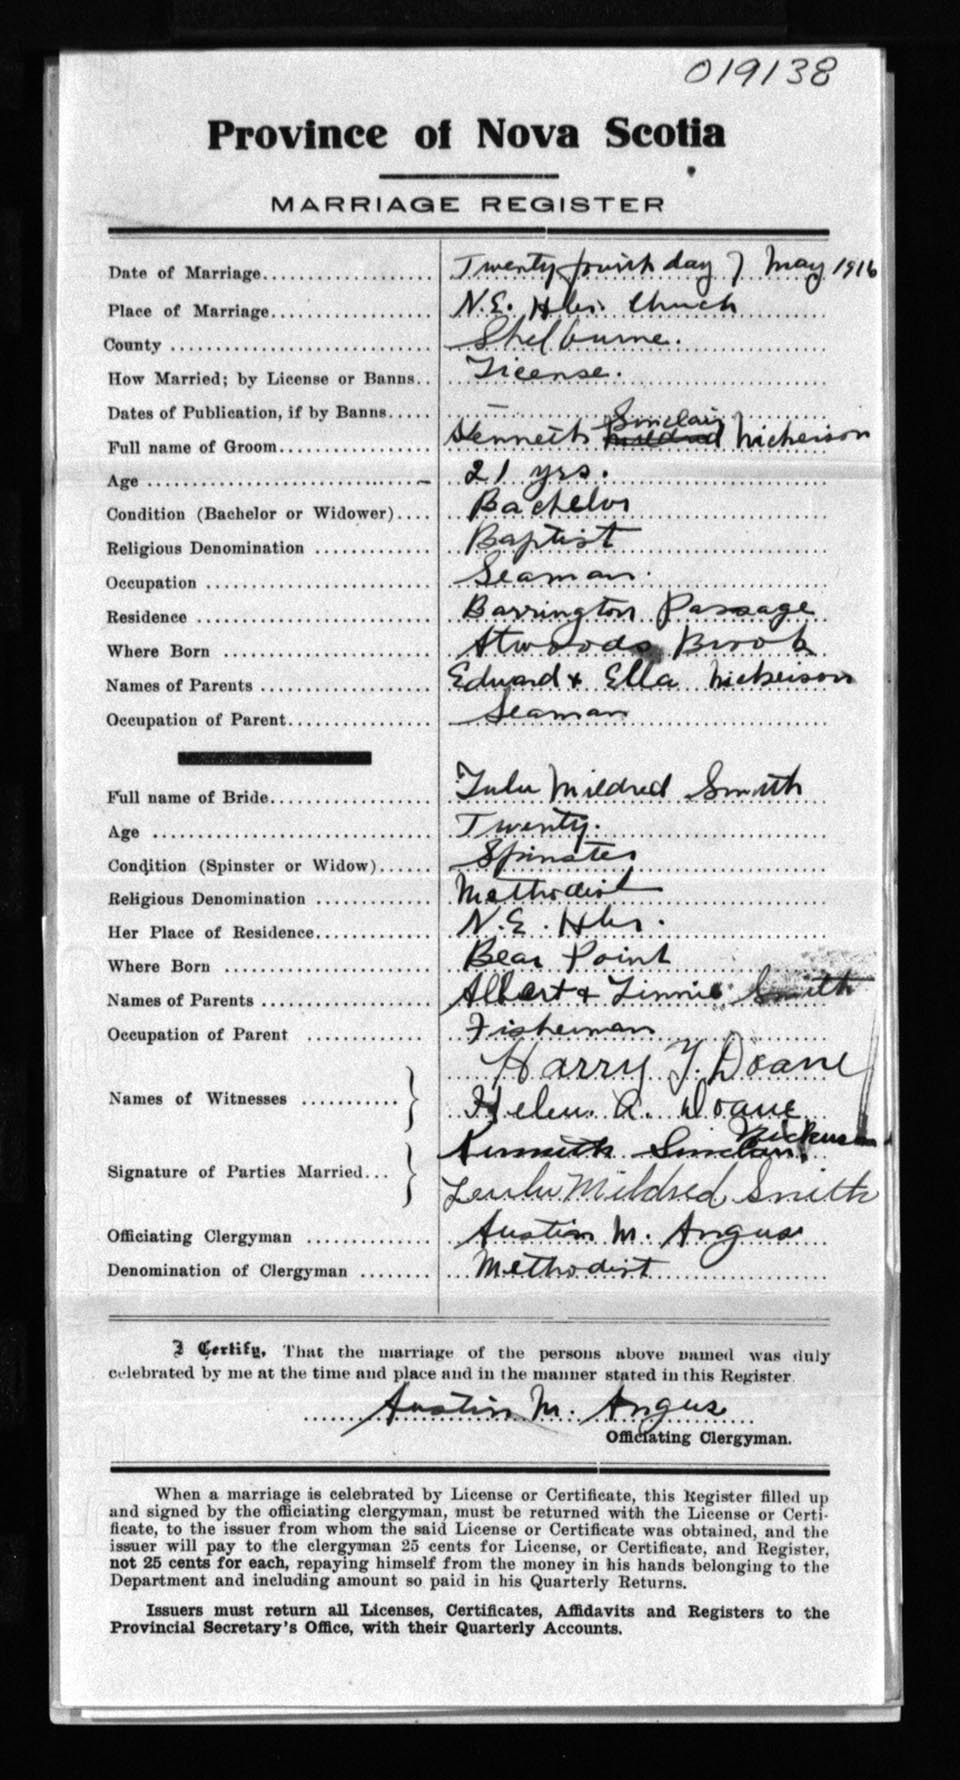 019138
Province of Nova Scotia
MARRIAGE REGISTER
Date of Marriage.................... Twenty fourth day of May 1916
Place of Marriage.................. N.E. Hbr. Church
County ............................ Shelburne.
How Married; by License or Banns.. License.
Dates of Publication, if by Banns..... —
Full name of Groom................. Kenneth Mildred Sinclair Nickerson
Age ............................... 21 yrs.
Condition (Bachelor or Widower).... Bachelor
Religious Denomination ............ Baptist
Occupation ........................ Seaman.
Residence ......................... Barrington Passage
Where Born ........................ Atwoods Brook
Names of Parents .................. Edward & Ella Nickerson
Occupation of Parent............... Seaman
Full name of Bride................. Lulu Mildred Smith
Age ............................... Twenty.
Condition (Spinster or Widow)...... Spinster
Religious Denomination ............ Methodist
Her Place of Residence............. N.E. Hbr.
Where Born ........................ Bear Point
Names of Parents .................. Albert & Linnie Smith
Occupation of Parent .............. Fisherman
Names of Witnesses ........... } Harry T. Doane
Helen A. Doane
Signature of Parties Married... } Kenneth Sinclair Nickerson
Leulu Mildred Smith
Officiating Clergyman ............. Austin M. Angus
Denomination of Clergyman ........ Methodist
I Certify, That the marriage of the persons above named was duly
celebrated by me at the time and place and in the manner stated in this Register.
Austin M. Angus
Officiating Clergyman.
When a marriage is celebrated by License or Certificate, this Register filled up
and signed by the officiating clergyman, must be returned with the License or Certi-
ficate, to the issuer from whom the said License or Certificate was obtained, and the
issuer will pay to the clergyman 25 cents for License, or Certificate, and Register,
not 25 cents for each, repaying himself from the money in his hands belonging to the
Department and including amount so paid in his Quarterly Returns.
Issuers must return all Licenses, Certificates, Affidavits and Registers to the
Provincial Secretary's Office, with their Quarterly Accounts.